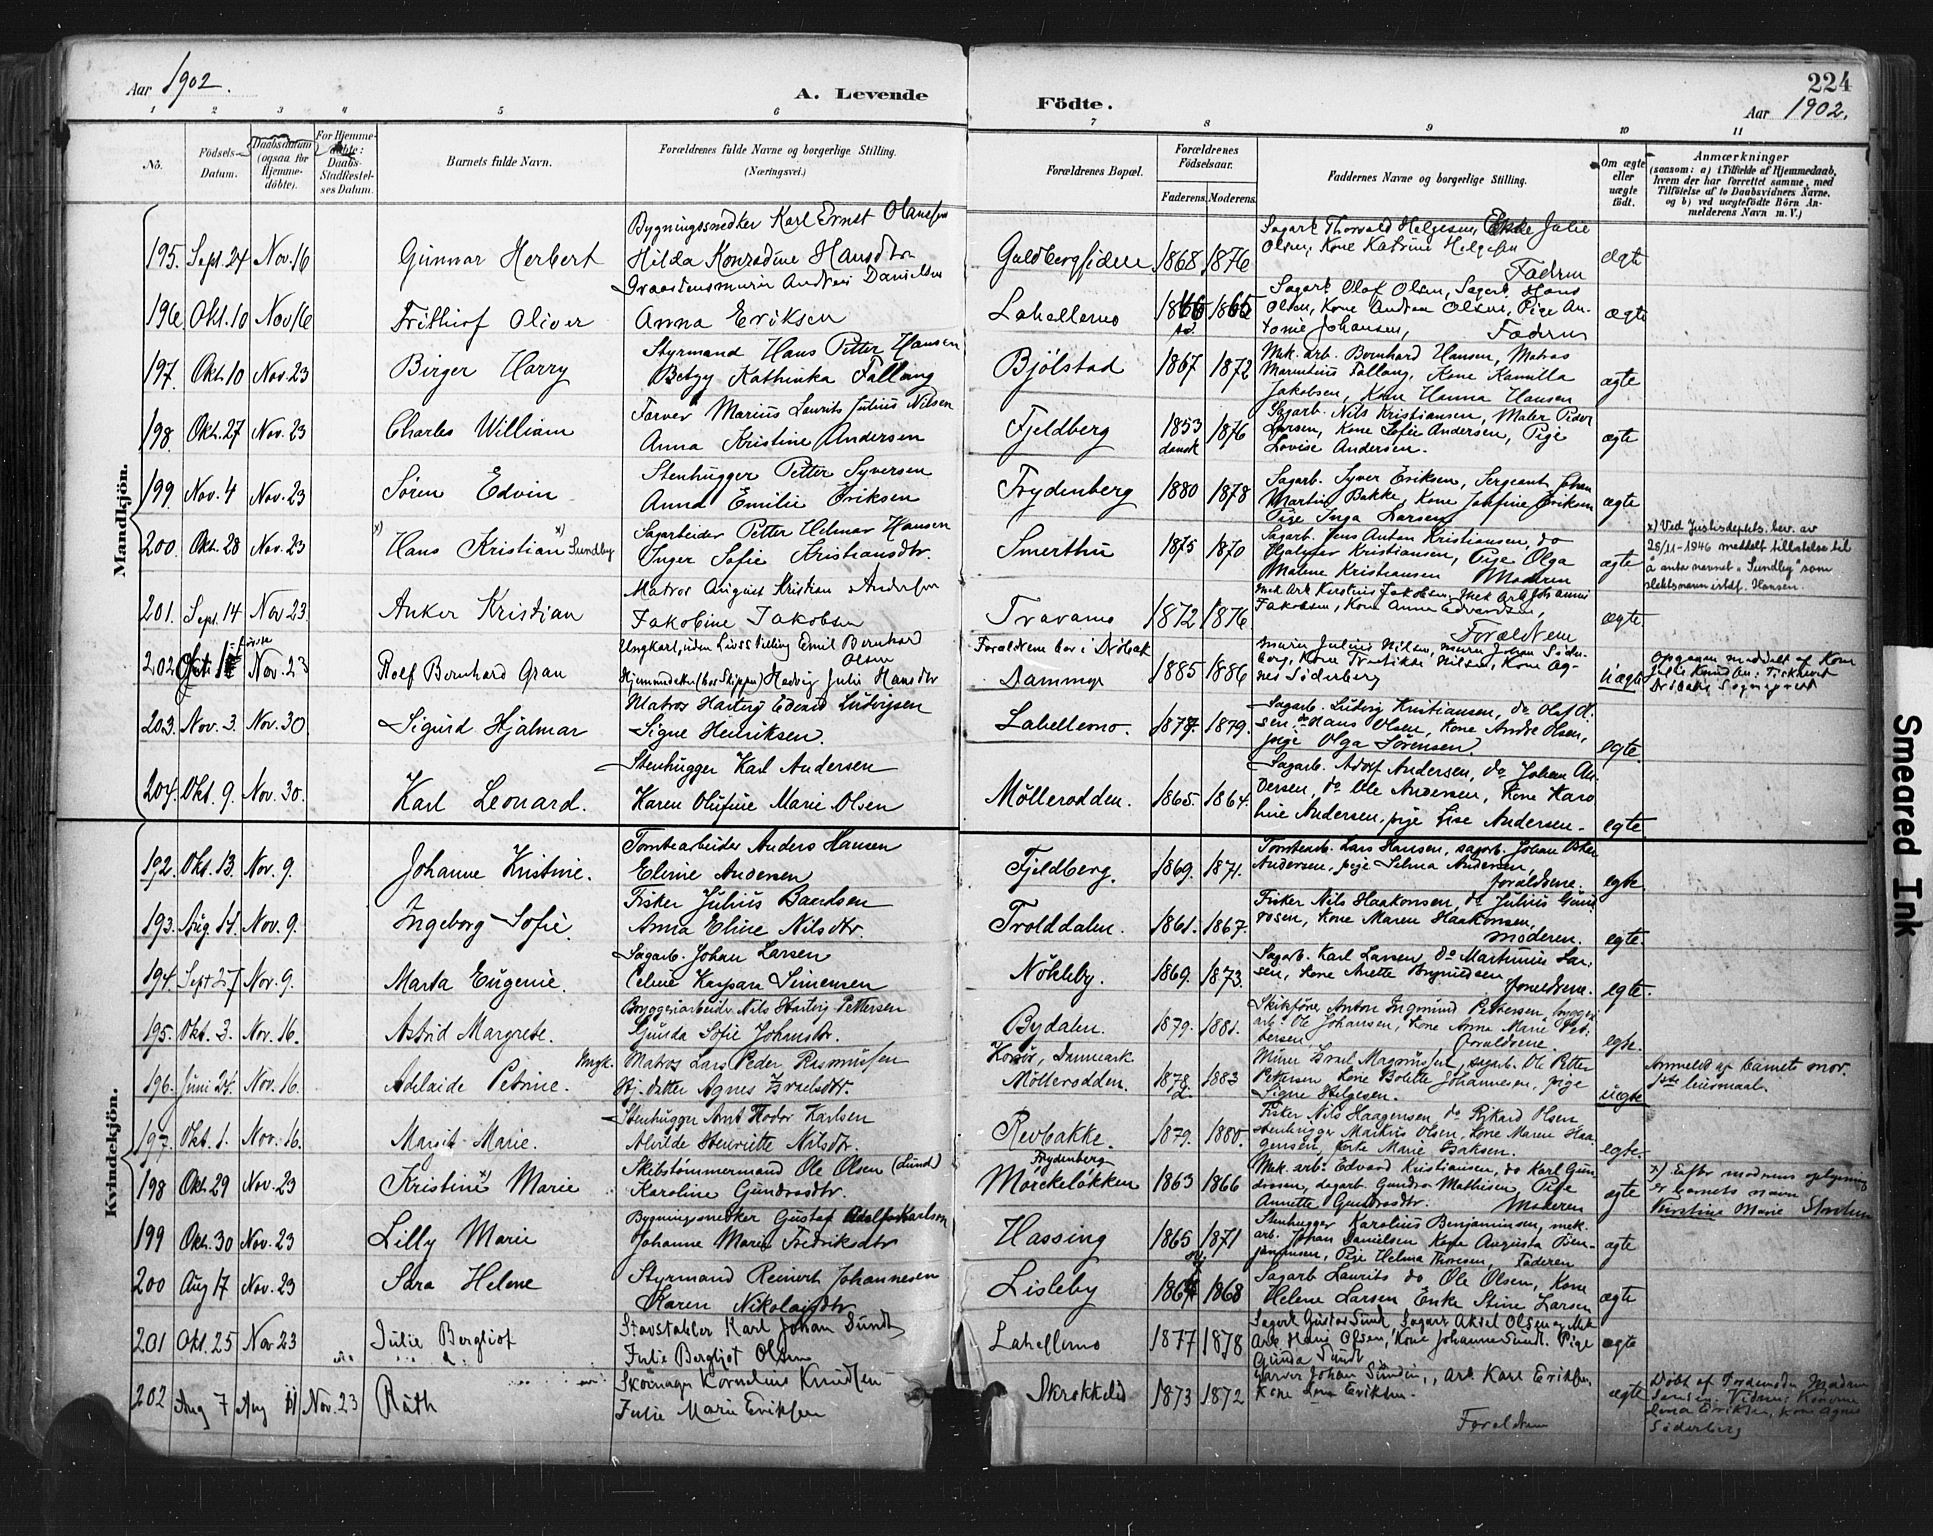 Aar 1902.
A. Levende
Födte.
224
Aar 1902.
1 2 3 4 5 6 7 8 9 10 11
No.
Födsels-Datum.
Daabsdatum (ogsaa for Hjemme-döbte).
For Hjemme-döbte: Daabs-Stadfæstel-ses Datum.
Barnets fulde Navn.
Forældrenes fulde Navne og borgerlige Stilling.
(Næringsvei.)
Forældrenes Bopæl.
Forældrenes Födselsaar.
Faderens. Moderens.
Faddernes Navne og borgerlige Stilling.
Om ægte eller uægte födt.
Anmærkninger
(saasom: a) i Tilfælde af Hjemmedaab, hvem der har forrettet samme, med Tilföielse af to Daabsvidners Navne, og b) ved uægtefödte Börn An-melderens Navn m. V.)
Mandkjön.
Bygningssnedker Karl Ernst Olaussen
195. Sept. 24 Nov. 16 Gunnar Herbert Hilda Konradine Hansdtr Guldbergsiden 1868 1876 Sagarb. Thorvald Helgesen, Enke Julie
Olsen, Kone Katrine Helgesen ægte
Faderen
Graastensmurer Andreas Danielsen
196 Okt. 10 Nov 16 Frithiof Oliver Anna Eriksen Lahellemo 1866 1865 Sagarb. Olaf Olsen, Sagarb. Hans
Olsen, Kone Andrea Olsen, Pige An-
tonie Johansen, Faderen ægte
Styrmand Hans Petter Hansen
197. Okt. 10 Nov. 23 Birger Harry Betzy Kathinka Fallang Bjölstad 1867 1872 Mek. arb. Bernhard Hansen, Matros
Marentius Fallang, Kone Kamilla
Jakobsen, Kone Hanna Hansen ægte
Farver Marius Laurits Julius Nilsen
198. Okt. 27 Nov. 23 Charles William Anna Kristine Andersen Fjeldberg 1853 dansk 1876 Sagarb. Nils Kristiansen, Maler Peder
Larsen, Kone Sofie Andersen, Pige
Lovise Andersen. ægte
Stenhugger Petter Syversen
199. Nov. 4 Nov. 23 Sören Edvin Anna Emilie Eriksen Frydenberg 1880 1878 Sagarb. Syver Eriksen, Sergeant Johan
Martin Bakke, Kone Josefine Eriksen
Pige Inga Larsen ægte
Sagarbeider Petter Hilmar Hansen
200. Okt. 28 Nov. 23 x) Hans Kristian x) Sundby Inger Sofie Kristiansdtr. Smerthu 1875 1870 Sagarb. Jens Anton Kristiansen, do
Hjalmar Kristiansen, Pige Olga
Malene Kristiansen Moderen ægte
x) Ved Justisdeptets. bev. av
25/11-1946 meddelt tillatelse til
å anta navnet "Sundby" som
slektsnavn istdf. Hansen.
Matros August Kristian Andersen
201. Sept. 14 Nov. 23. Anker Kristian Jakobine Jakobsen Traramo 1872 1876
Jakobsen, Kone Anne Edvardsen,
Forældrene ægte
Ungkarl, uden Livsstilling Emil Bernhard Olsen
202 Nov. 23 Rolf Bernhard Gran Hjemmedatter (hos Skipper) Hedvig Julie Hansdtr
Forældrene bor i Dröbak
Dammyr 1885 1886 Murer Julius Nilsen, murer Johan Söder-
berg, Kone Fredrikke Nilsen, Kone Ag-
nes Söderberg uægte
Matros Hartvig Edvard Ludvigsen
203. Nov. 3. Nov. 30. Sigurd Hjalmar Signe Henriksen. Lahellemo. 1877. 1879. Sagarb. Ludvig Kristiansen, do Olaf Ol-
sen, do Hans Olsen, Kone Andre Olsen,
pige Olga Sörensen. egte.
Stenhugger Karl Andersen
204. Okt. 9. Nov. 30. Karl Leonard. Karen Olufine Marie Olsen Möllerodden. 1865. 1864. Sagarb. Adolf Andersen, do Johan An-
dersen, do Ole Andersen, Kone Karo
line Andersen, pige Lise Andersen. egte
Kvindekjön.
Tomtearbeider Anders Hansen
192. Okt. 13. Nov. 9. Johanne Kristine. Eline Andersen Fjeldberg. 1869. 1871. Tomtearb. Lars Hansen, sagarb. Johan Oskar
Andersen, pige Selma Andersen,
forældrene. egte.
Fisker Julius Baardsen
193. Aug. 14. Nov. 9. Ingeborg Sofie. Anna Eline Nilsdtr. Trolddalen. 1861. 1867. Fisker Nils Haakonsen, do Julius Gun-
rosen, Kone Maren Haakonsen,
moderen. egte.
Sagarb. Johan Larsen
194. Sept 27 Nov. 9. Marta Eugenie. Celine Kaspara Simensen Nöhleby. 1869. 1873. Sagarb. Karl Larsen, do Martinius Lar-
sen, Kone Anette Brynildsen
forældrene. egte.
Bryggeriarbeider Nils Hartvig Pettersen
195. Okt. 3. Nov. 16. Astrid Margrete. Gunda Sofie Johansdtr. Bydalen. 1879. 1881. Skibsförer Anton Ingmund Pettersen, brygger
arb. Ole Johansen, Kone Anne Marie Pet-
tersen forældrene. egte.
Ungk. Matros Lars Peder Rasmussen Korsör, Danmark
196. Juni 24. Nov. 16. Adelaide Petrine. Hj. datter Agnes Israelsdtr. Möllerodden. 1878 1883 Murer Israel Magnussen, sagarb. Ole Petter
Pettersen, Kone Bolette Johannesen, pige
Signe Helgesen. uegte
Anmeldt af barnets mor.
1ste leiermaal.
Stenhugger Arnt Teodor Karlsen
197. Okt. 1. Nov. 16. Margit Marie. Alvilde Henriette Nilsdtr. Revbakke. 1879. 1880. Fisker Nils Haagensen, do Rikard Olsen
Stenhugger Markus Olsen, Kone Maren Haa
gensen, Marie Isaksen. egte.
Skibstömmermand Ole Olsen (Lund)
198 Okt. 29 Nov. 23 Kristine x) Marie Karoline Gundersdtr. Frydenberg
Mörckelökken 1863 1866 Mek. arb. Edvard Kristiansen, do Karl Gun
dersen, Gunder Mathisen, Pige
Annette Gundersdtr. Moderen ægte
x) Efter moderens oplysning
er barnets navn
Kirstine Marie
Bygningssnedker Gustaf Adolf Karlson
199 Okt. 30 Nov. 23 Lilly Marie Johanne Marie Fredriksdtr Hassing 1865 1871 Stenhugger Karolius Benjaminsen, mek.
arb. Johan Danielsen Kone Augusta Ben-
jaminsen, Pige Helma Thoresen, Faderen ægte
Styrmand Reinert Johannesen
200 Aug 17 Nov. 23 Sara Helene Karen Nikolaisdtr Lisleby 1864 1868 Sagarb Laurits do Ole Olsen, Kone
Helene Larsen Enke Stine Larsen ægte
Stavstabler Karl Johan Sundt
201 Okt. 25 Nov 23 Julie Bergliot Julie Bergljot Olsen Lahellemo 1877 1878 Sagarb Gustav Sundt, Sagarb Aksel Olsen og Mek
Arb Hans Olsen, Kone Johanne Sundt. Pige
Gunda Sundt ægte
Skömager Kornelius Knudsen
202 Aug 7 Aug 11 Nov. 23 Ruth Julie Marie Eriksen Skrokkelid 1873 1872 Garver Johan Sundin, Arb Karl Eriksen
Kone Eriksen.
Forældrene ægte
Döbt af Jordemoder Madam
Jensen. Vidner: Konerne
Lena Eriksen, Kone Agnes
Söderberg
Smeared Ink